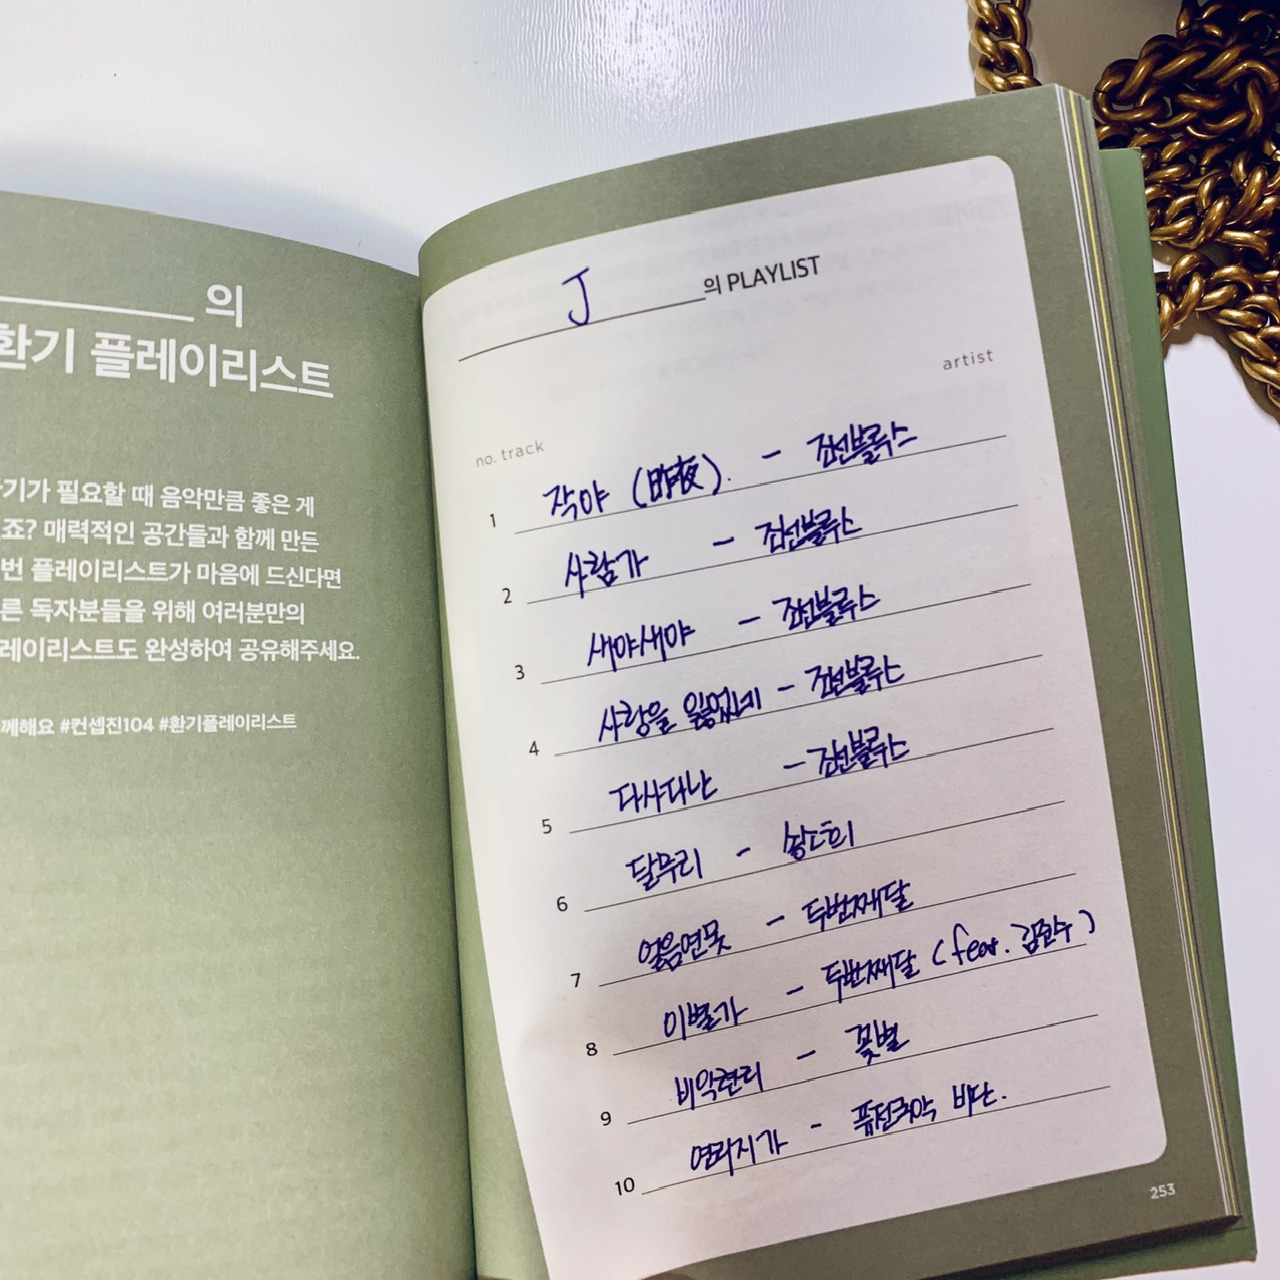 의
환기 플레이리스트
기가 필요할 때 음악만큼 좋은 게
죠? 매력적인 공간들과 함께 만든
번 플레이리스트가 마음에 드신다면
른 독자분들을 위해 여러분만의
레이리스트도 완성하여 공유해주세요.
께해요 #컨셉진104 #환기플레이리스트
J 의 PLAYLIST
no. track artist
1 작야 (昨夜). - 조선블루스
2 사랑가 - 조선블루스
3 새야새야 - 조선블루스
4 사랑을 잃었네 - 조선블루스
5 다사다난 - 조선블루스
6 달무리 - 송소희
7 얼음연못 - 두번째달
8 이별가 - 두번째달 (feat. 김준수)
9 비익련리 - 꽃별
10 연리지가 - 퓨전국악 비단.
253